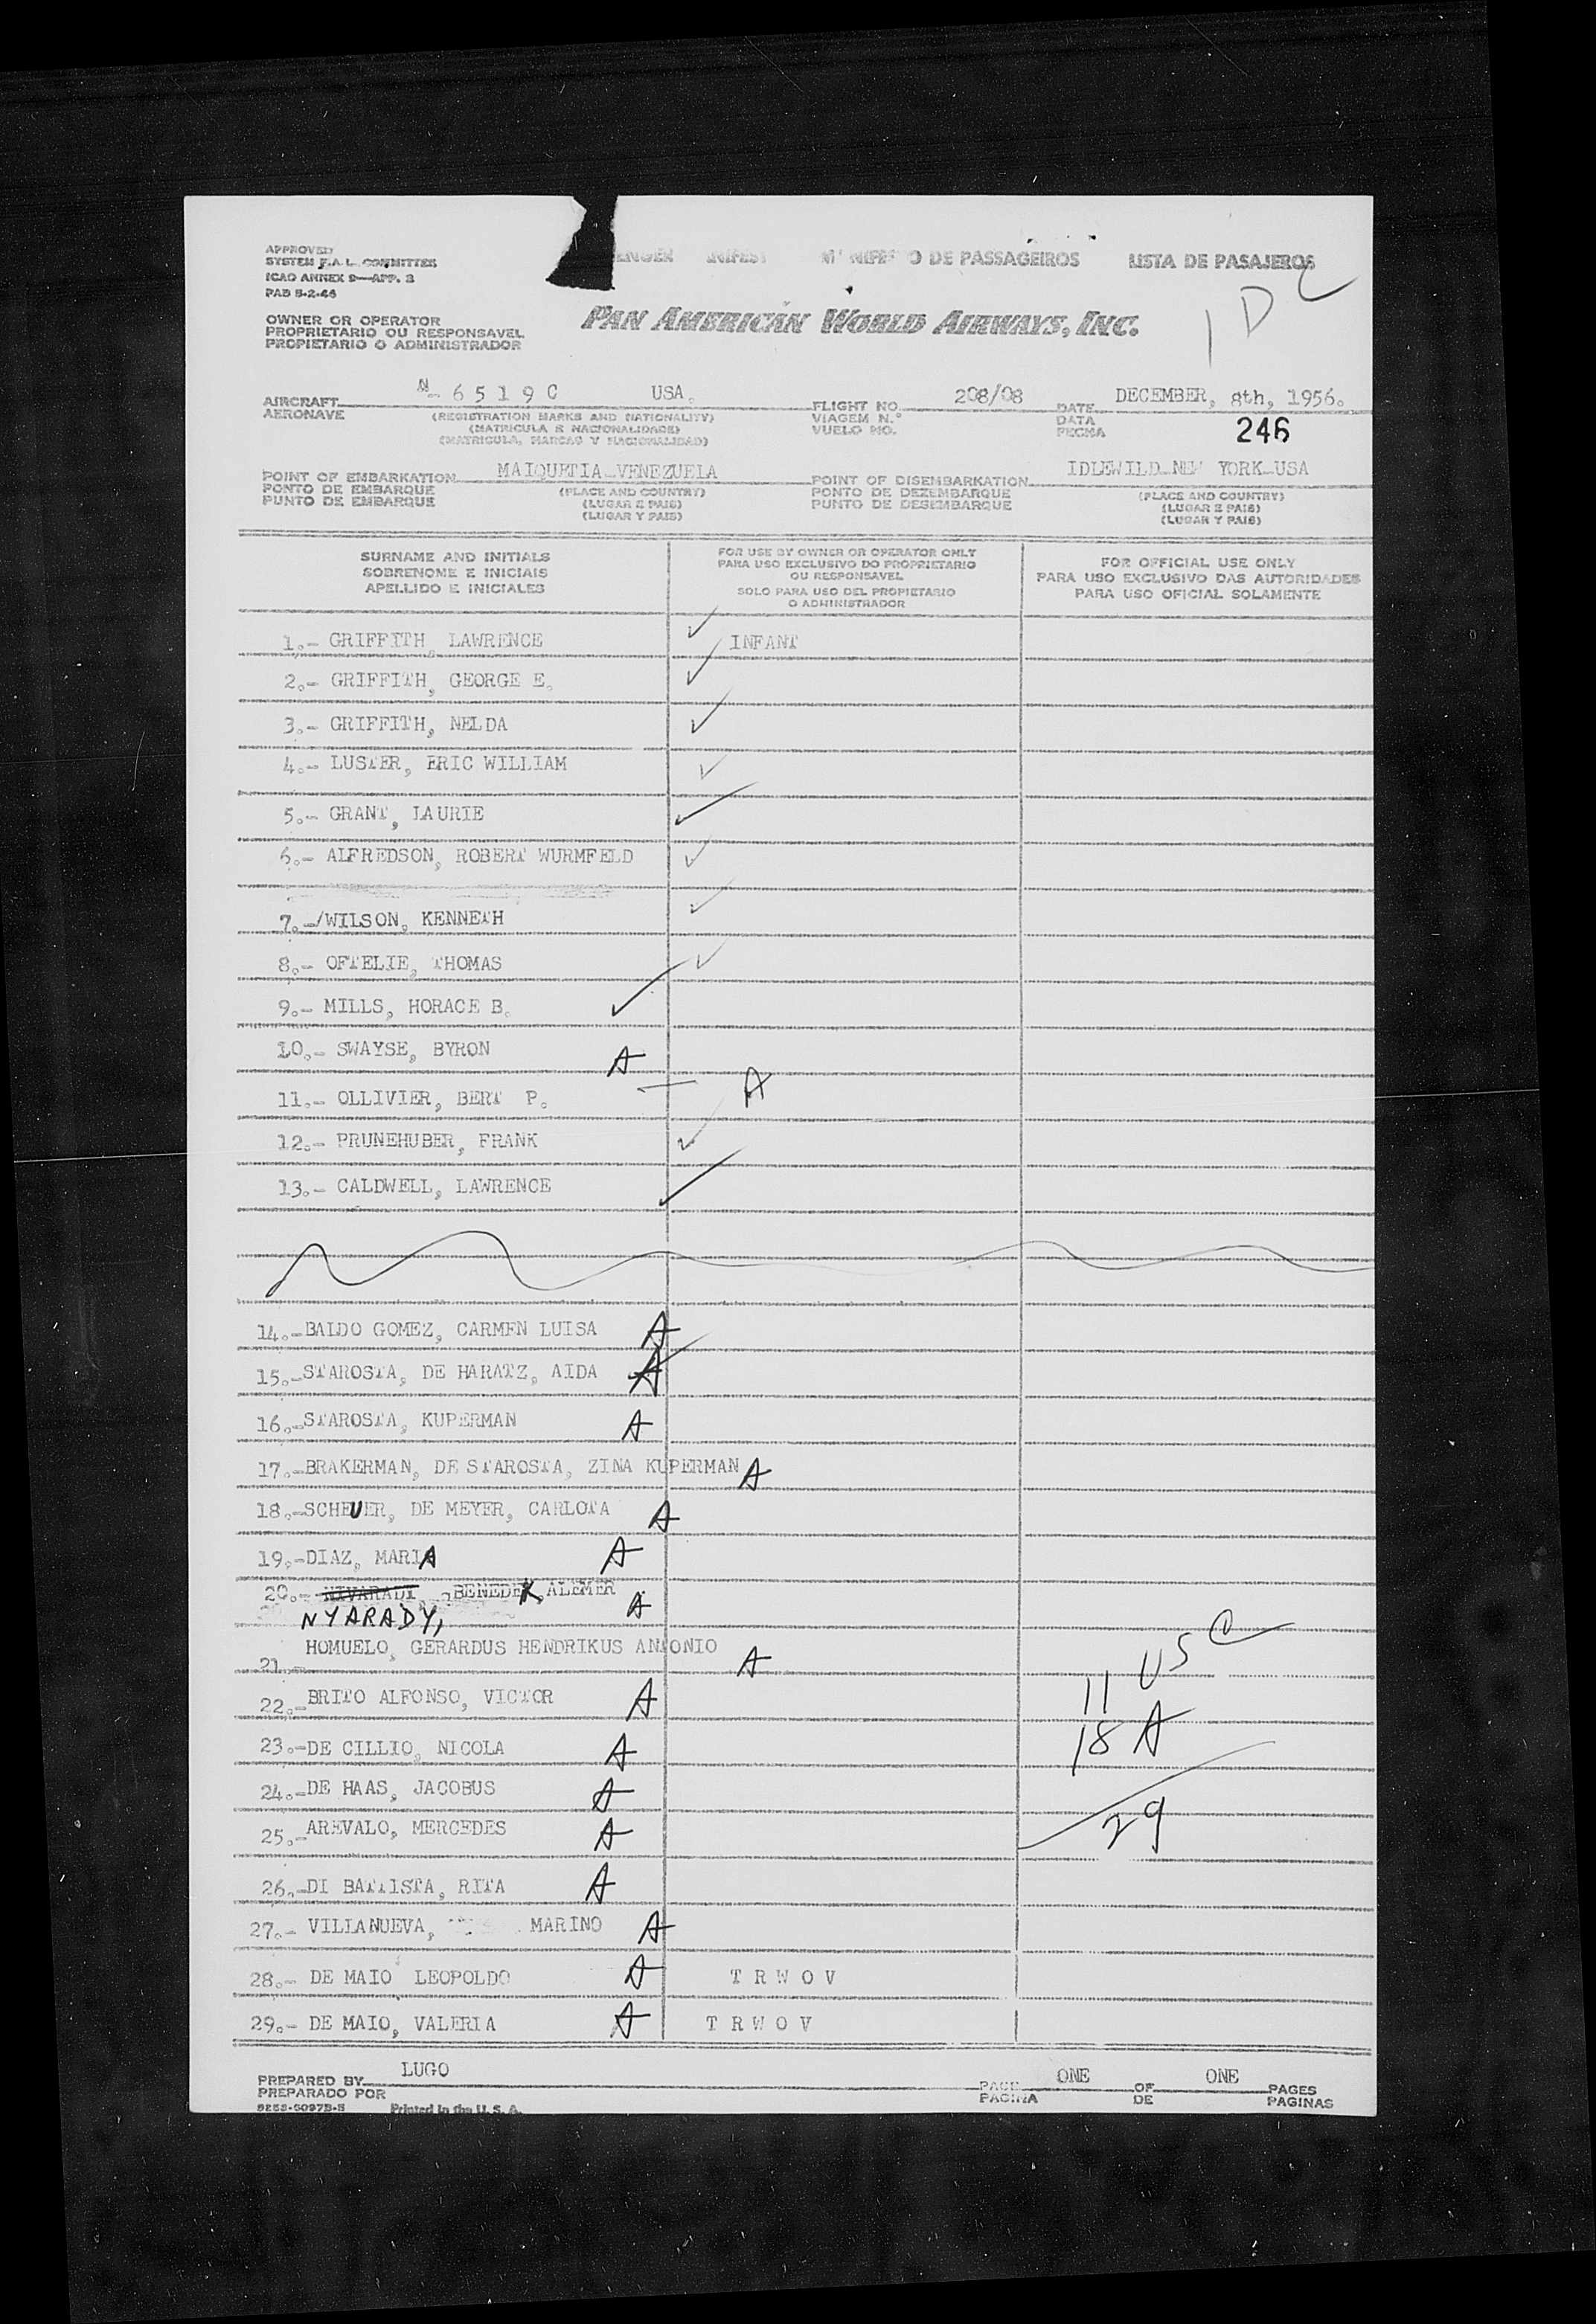 APPROVED
SYSTEM F.A.L. COMMITTEE
ICAO ANNEX 9—APP. 3
PAD 5-2-46
MANIFESTO DE PASSAGEIROS LISTA DE PASAJEROS
1 D C
OWNER OR OPERATOR
PROPRIETARIO OU RESPONSAVEL
PROPIETARIO O ADMINISTRADOR
PAN AMERICAN WORLD AIRWAYS, INC.
AIRCRAFT N- 6 5 1 9 C USA. FLIGHT NO. 208/08 DATE DECEMBER, 8th, 1956.
AERONAVE (REGISTRATION MARKS AND NATIONALITY) VIAGEM N.º DATA
(MATRICULA E NACIONALIDADE) VUELO NO. FECHA 246
(MATRICULA, MARCAS Y NACIONALIDAD)
POINT OF EMBARKATION MAIQUETIA VENEZUELA POINT OF DISEMBARKATION IDLEWILD NEW YORK USA
PONTO DE EMBARQUE (PLACE AND COUNTRY) PONTO DE DEZEMBARQUE (PLACE AND COUNTRY)
PUNTO DE EMBARQUE (LUGAR E PAIS) PUNTO DE DESEMBARQUE (LUGAR E PAIS)
(LUGAR Y PAIS) (LUGAR Y PAIS)
SURNAME AND INITIALS
SOBRENOME E INICIAIS
APELLIDO E INICIALES
FOR USE BY OWNER OR OPERATOR ONLY
PARA USO EXCLUSIVO DO PROPRIETARIO
OU RESPONSAVEL
SOLO PARA USO DEL PROPIETARIO
O ADMINISTRADOR
FOR OFFICIAL USE ONLY
PARA USO EXCLUSIVO DAS AUTORIDADES
PARA USO OFICIAL SOLAMENTE
1.- GRIFFITH, LAWRENCE ✓ INFANT
2.- GRIFFITH, GEORGE E. ✓
3.- GRIFFITH, NELDA ✓
4.- LUSTER, ERIC WILLIAM ✓
5.- GRANT, LAURIE ✓
6.- ALFREDSON, ROBERT WURMFELD ✓
7.-/WILSON, KENNETH ✓
8.- OFTELIE, THOMAS ✓
9.- MILLS, HORACE B. ✓
10.- SWAYSE, BYRON A
11.- OLLIVIER, BERT P. — A
12.- PRUNEHUBER, FRANK ✓
13.- CALDWELL, LAWRENCE ✓
14.-BALDO GOMEZ, CARMEN LUISA A
15.-STAROSTA, DE HARATZ, AIDA A
16.-STAROSTA, KUPERMAN A
17.-BRAKERMAN, DE STAROSTA, ZINA KUPERMAN A
18.-SCHEUER, DE MEYER, CARLOTA A
19.-DIAZ, MARIA A
20.- NIVARADI, BENEDEK, ALEMER A
NYARADY,
21.- HOMUELO, GERARDUS HENDRIKUS ANTONIO A
11 USC
22.-BRITO ALFONSO, VICTOR A
18 A
23.-DE CILLIO, NICOLA A
24.-DE HAAS, JACOBUS A
29
25.-AREVALO, MERCEDES A
26.-DI BATTISTA, RITA A
27.- VILLANUEVA, MARINO A
28.- DE MAIO LEOPOLDO A T R W O V
29.- DE MAIO, VALERIA A T R W O V
PREPARED BY LUGO PAGE ONE OF ONE PAGES
PREPARADO POR PAGINA DE PAGINAS
Printed in the U. S. A.